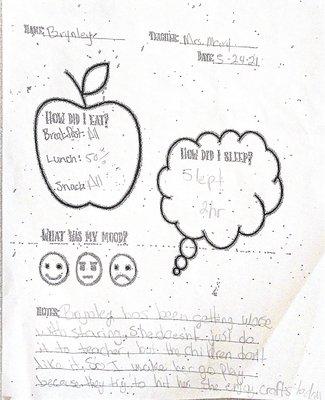 NAME: Brynley TEACHER: Mrs.
DATE: 5-24-21
HOW DID I EAT?
Breakfast: All
Lunch: 50%
Snack: All
HOW DID I SLEEP?
Slept
2hr
WHAT WAS MY MOOD?
NOTES: Brynley has been getting worse
with staring. She doesn't just do
it to teacher, but the children don't
like it, so I make her go play
because they try to hit her. She enjoy crafts